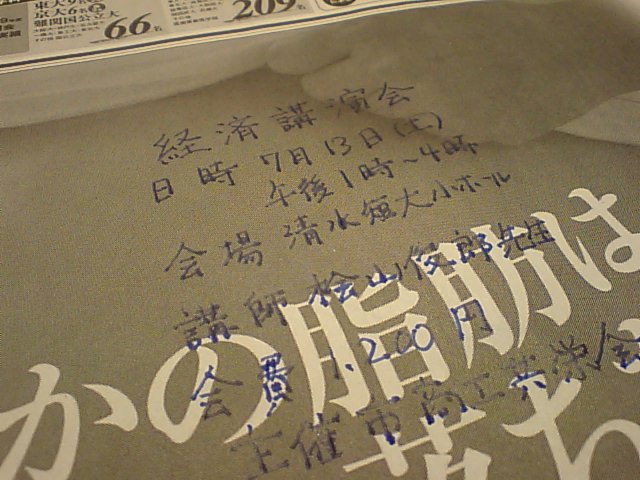 東大9名
京大6名
難関国公立大
66名
209名
経済講演会
日時 7月13日(土)
午後1時～4時
会場 清水短大小ホール
講師 桧山俊郎先生
会費 1,200円
主催 市商工共栄会
かの脂肪は
落ち